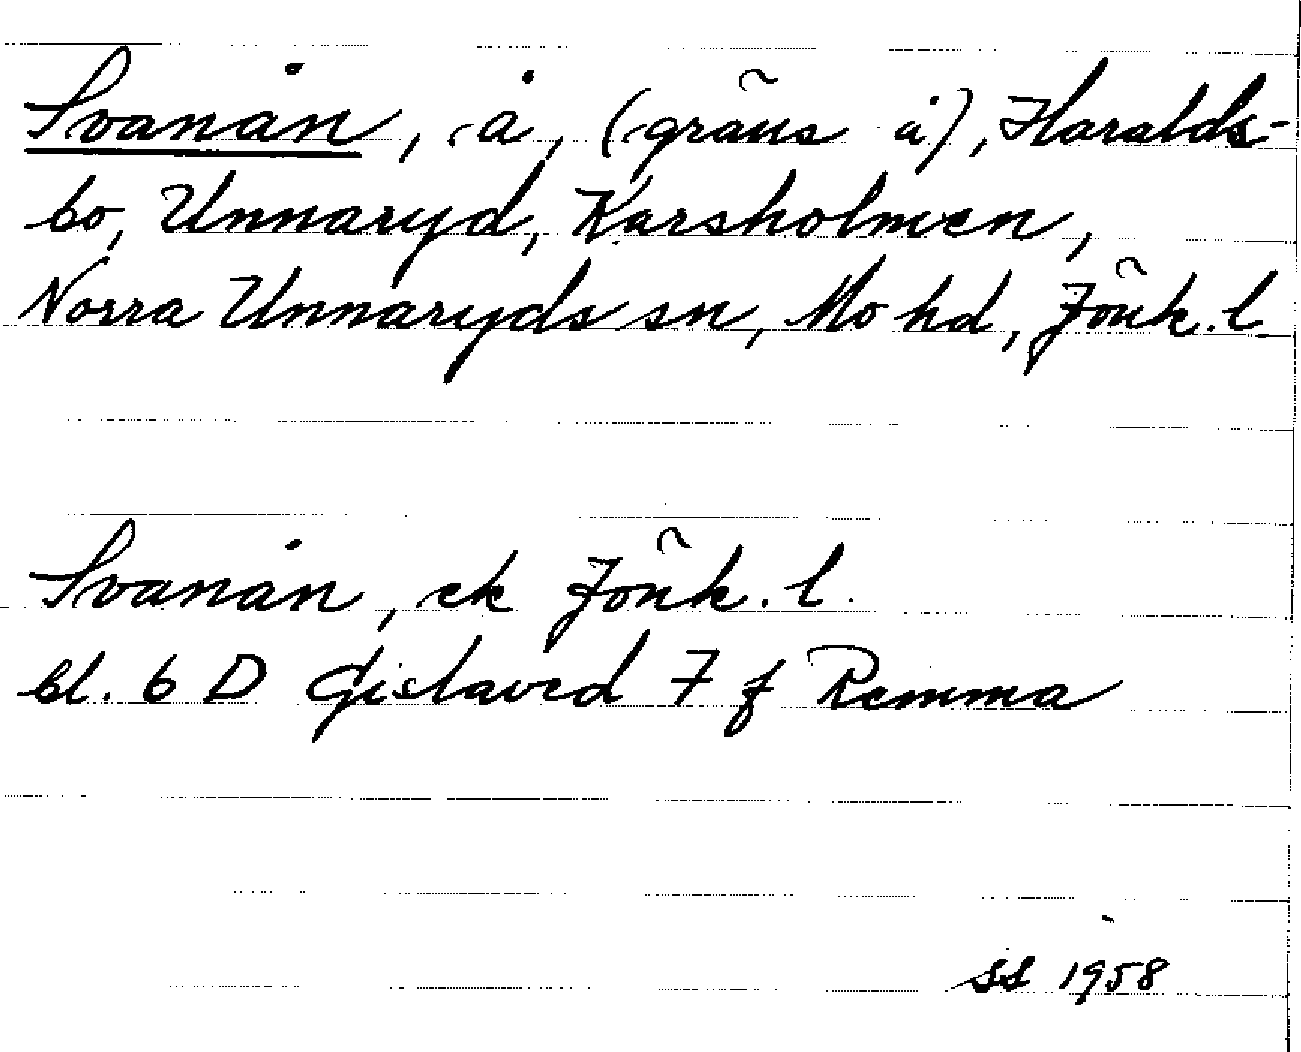 Svanån, å, (gräns å), Haralds-
bo, Unnaryd, Karsholmen,
Norra Unnaryds sn, Mo hd, Jönk. l.
Svanån, ek Jönk. l.
bl. 6 D Gislaved 7 f Remma
SS 1958